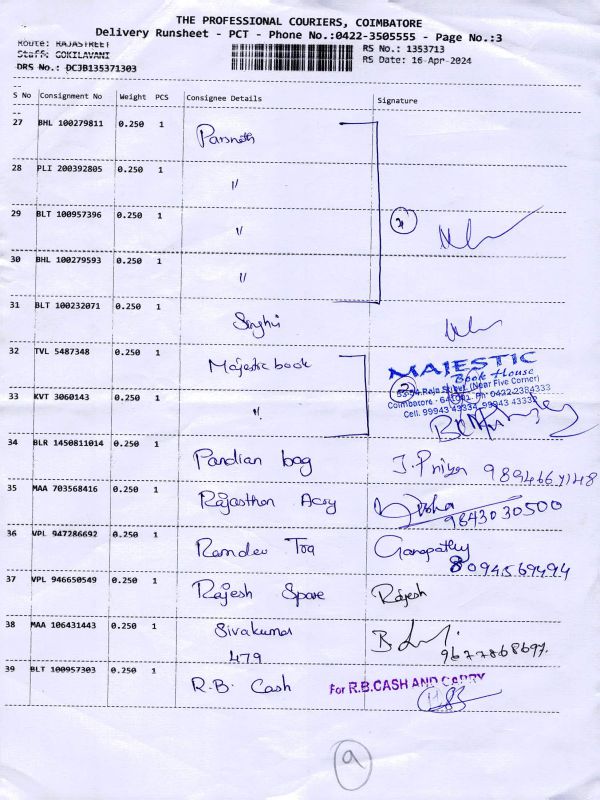 THE PROFESSIONAL COURIERS, COIMBATORE
Delivery Runsheet - PCT - Phone No.:0422-3505555 - Page No.:3
Route: RAJASTREET
Staff: GOKILAVANI
DRS No.: DCJB135371303
RS No.: 1353713
RS Date: 16-Apr-2024
S No Consignment No Weight PCS Consignee Details Signature
27 BHL 100279811 0.250 1
28 PLI 200392805 0.250 1 "
29 BLT 100957396 0.250 1 "
30 BHL 100279593 0.250 1 "
31 BLT 100232071 0.250 1
32 TVL 5487348 0.250 1 Majestic book
MAJESTIC
Book House
(Near Five Corner)
33 KVT 3060143 0.250 1 "
34 BLR 1450811014 0.250 1 Pandian bag J. Priya
35 MAA 703568416 0.250 1 Rajasthan 9843030500
36 VPL 947286692 0.250 1 Ramdev Ganapathy
8094569494
37 VPL 946650549 0.250 1 Rajesh Spare Rajesh
38 MAA 106431443 0.250 1 Sivakumar
479
39 BLT 100957303 0.250 1 R.B. Cash For R.B.CASH AND CARRY
9